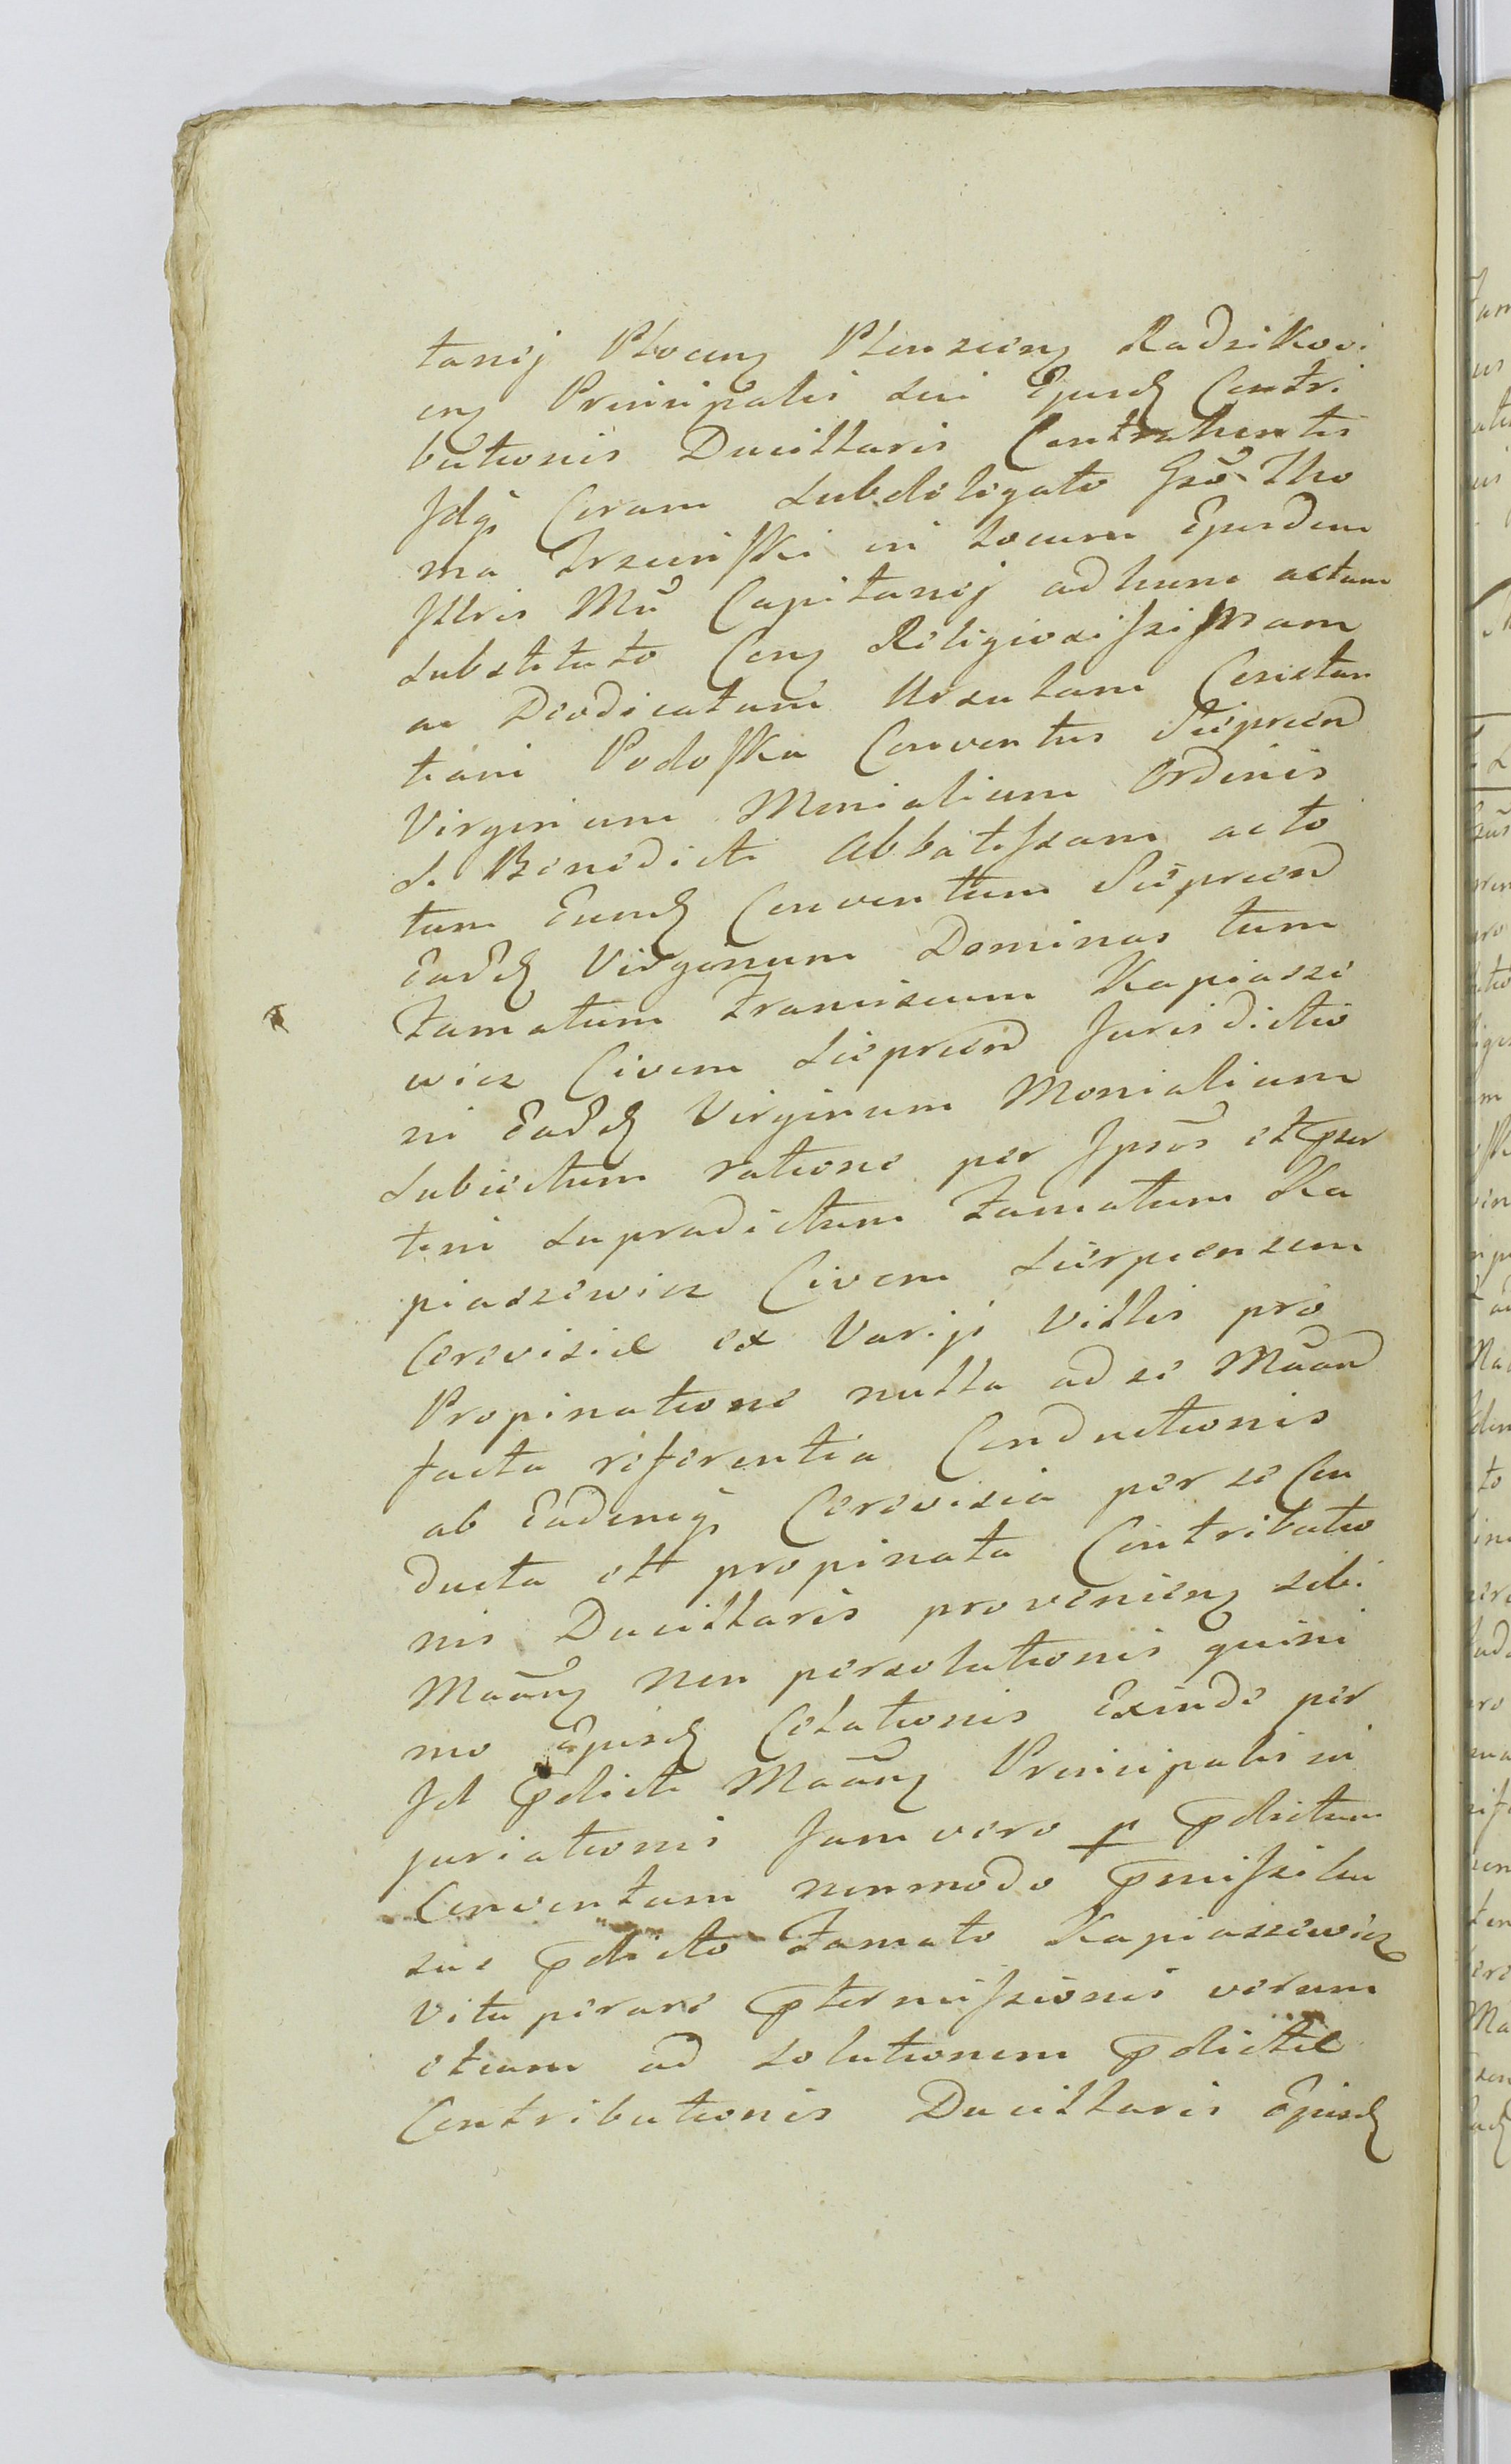 tanej Plocen Plonscen Radzikovi
en Principalis sui Ejusd Contri
butionis Ducillaris Contrahentis
Idq Coram Subdeligato Gso Tho
ma Trzcinski in Locum Ejusdem
Illris Mci Capitanej ad hunc actum
Substituto Con Religiosissimam
ac Deodicatam Ursulam Constan
tiam Podoska Conventus Sieprcen
Virginum Monialium Ordinis
S. Benedicti Abbatissam ac to
tum Eund Conventum Sieprcen
Eard Virginum Dominas tum
Famatum Franciscum Kapiasze
wicz Civem Sieprcen Jurisdictio
ni Eard Virginum Monialium
Subiectum ratione per Ipsos et pser
tim Supradictum Famatum Ka
piaszewicz Civem Sierpcensem
Cerevisiæ ex Varijs Villis pro
Propinatione nulla ad se Mand
facta referentia Conductionis
ab Eademq Cerevisia per se Con
ducta et propinata Contributio
nis Ducillaris provenien sibi
Maan non persolutionis quini
mo Ejusd Celationis Exinde per
Id pdicti Maan Principalis in
juriationis Jam vero p pdictum
Conventum nonmodo pmissibu
sue pdicto Famato Kapiaszewicz
Vituperare ptermissionis verum
etiam ad Solutionem pdictæ
Contributionis Ducillaris Ejusd